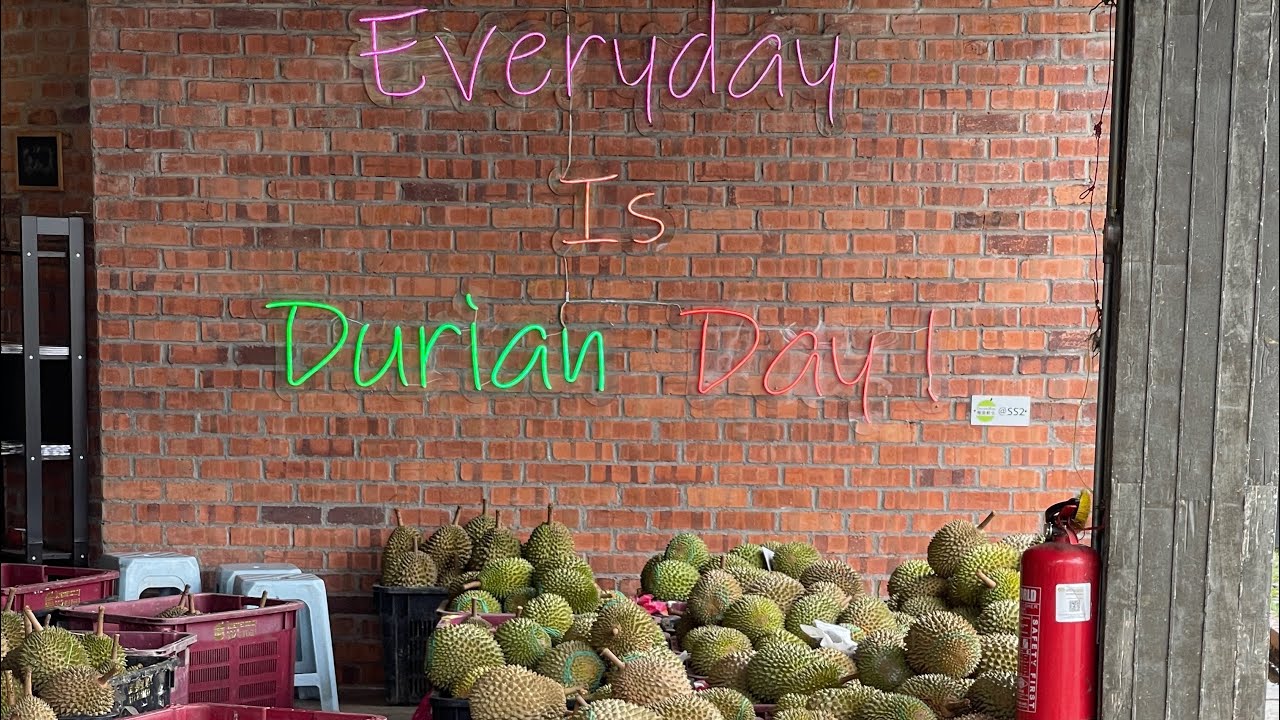 Everyday
Is
Durian Day!
@SS2
SAFETY FIRST